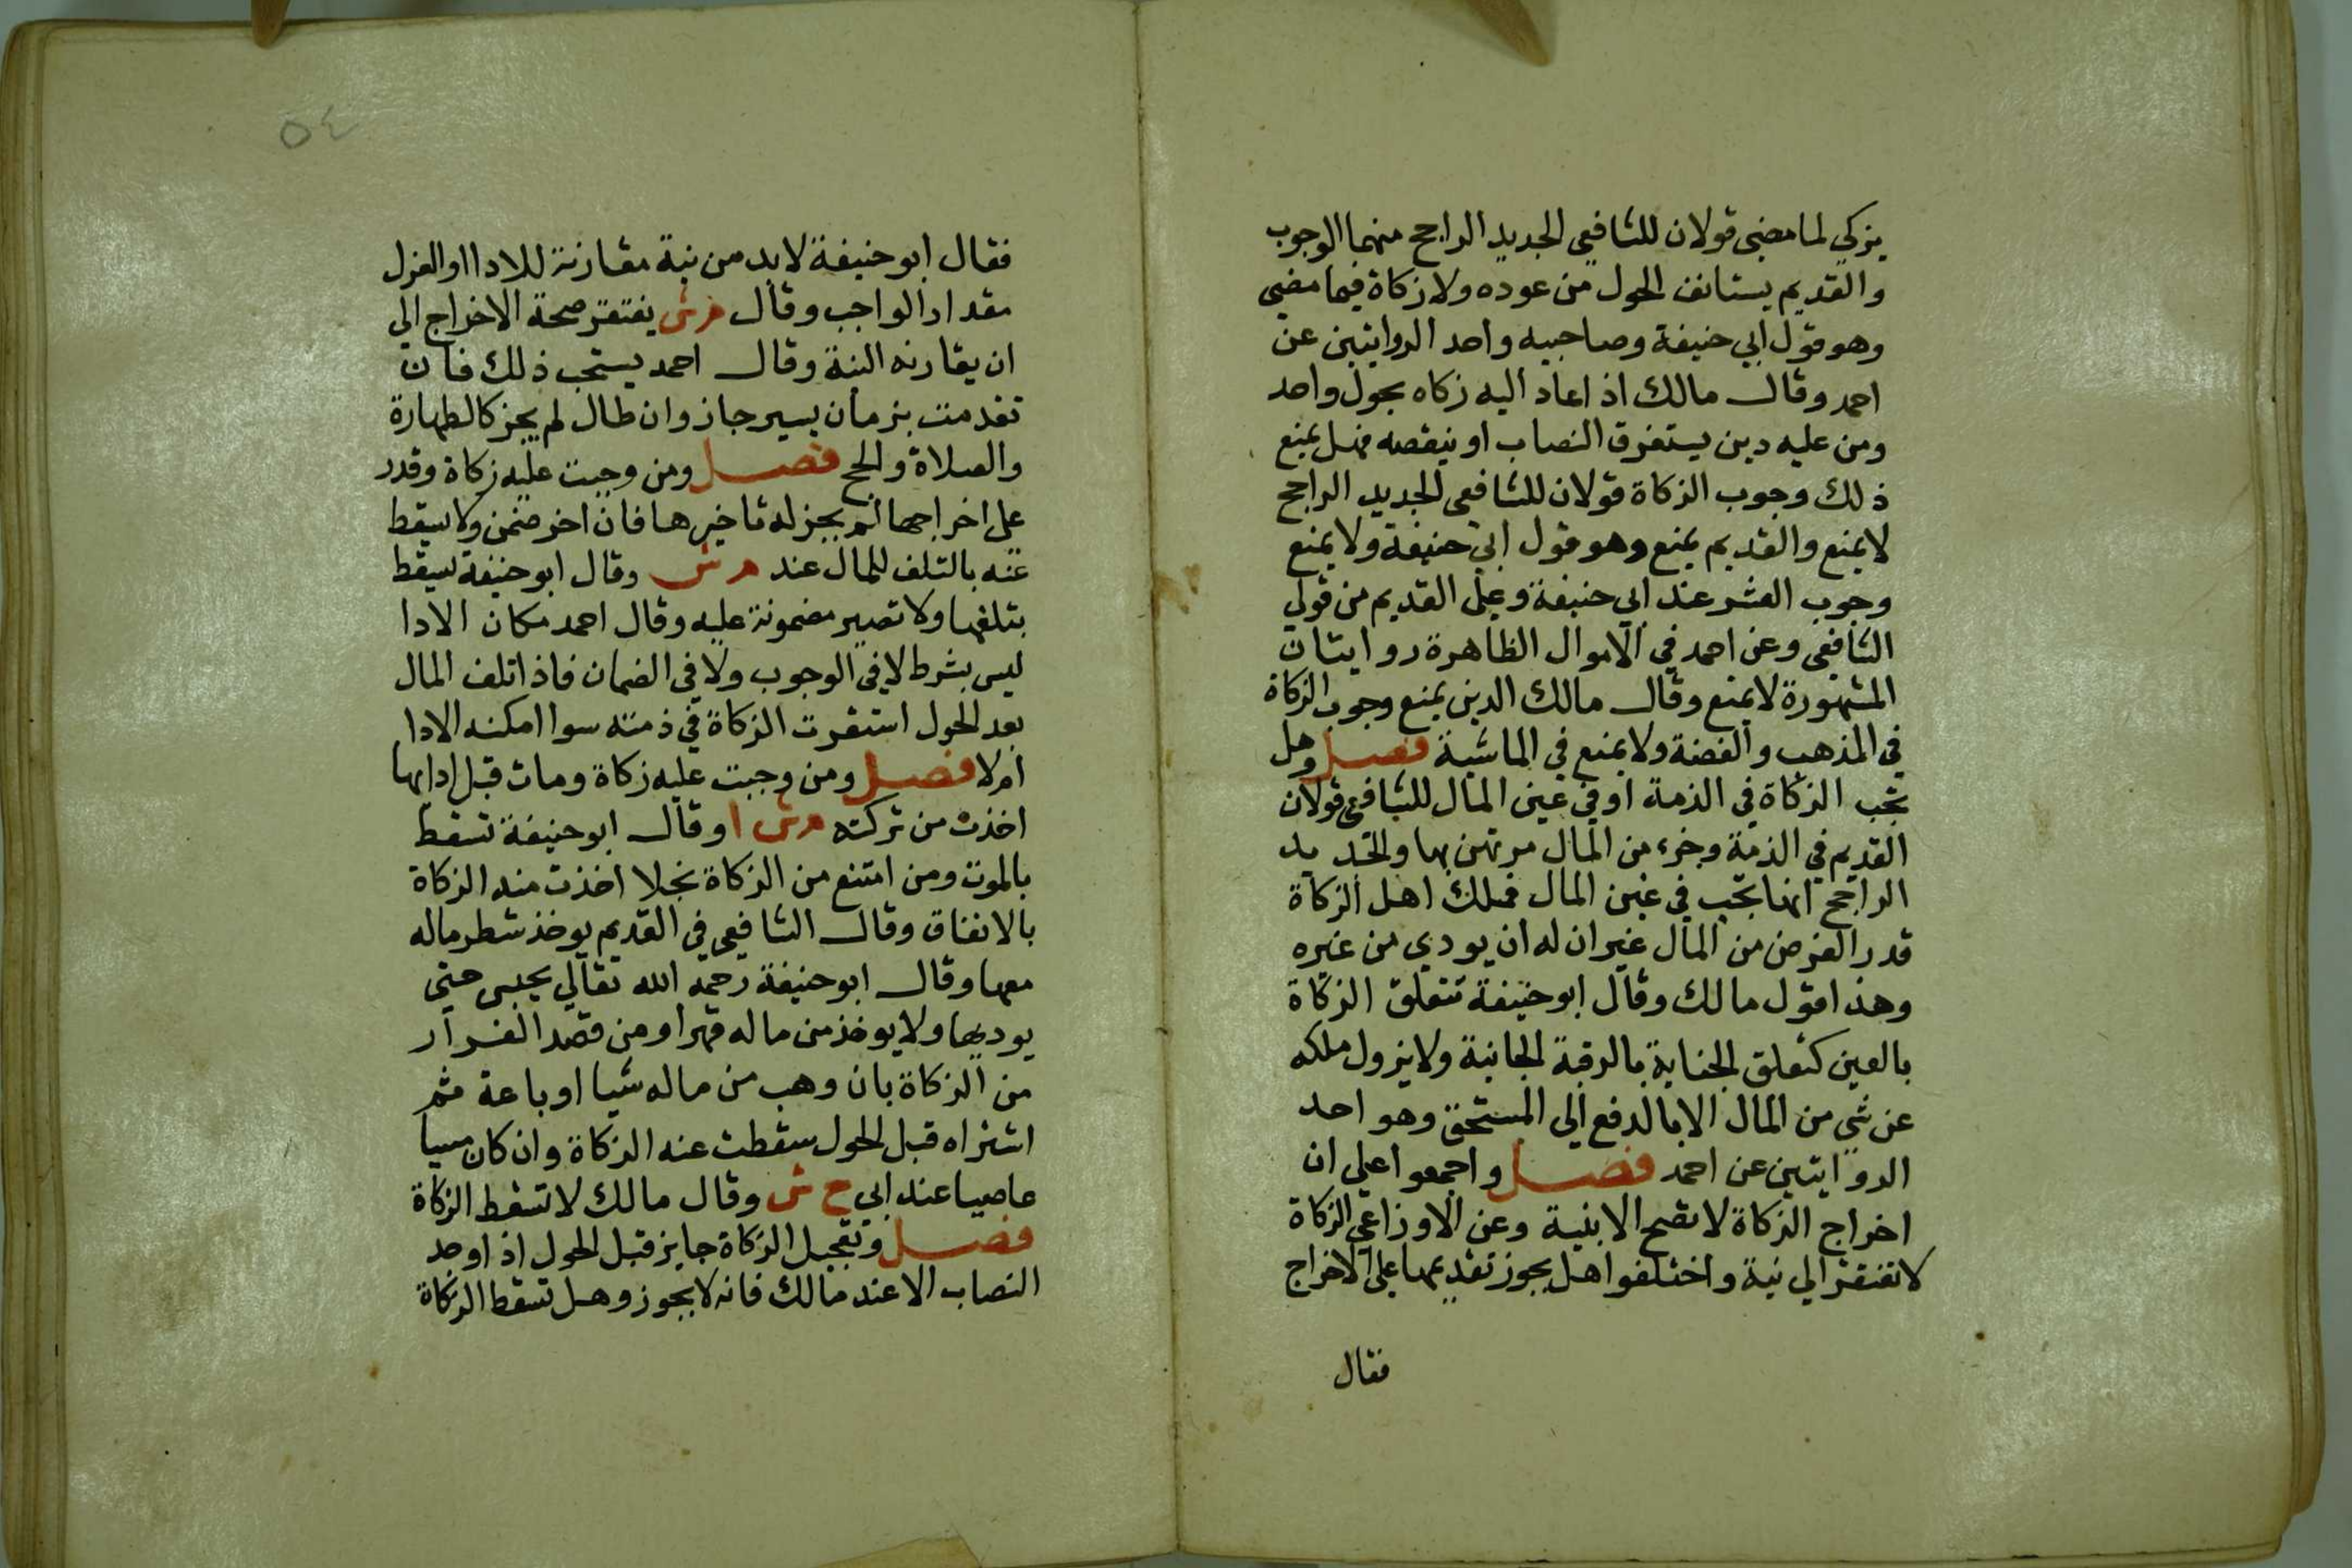 يزكي لما مضى قولان للشافعي الجديد الراجح منهما الوجوب
والقديم يستانف الحول من عوده ولا زكاة فيما مضى
وهو قول ابي حنيفة وصاحبيه واحد الروايتين عن
احمد وقال مالك اذا عاد اليه زكاه بحول واحد
ومن عليه دين يستغرق النصاب او ينقصه فهل يمنع
ذلك وجوب الزكاة قولان للشافعي الجديد الراجح
لا يمنع والقديم يمنع وهو قول ابي حنيفة ولا يمنع
وجوب العشر عند ابي حنيفة وعلى القديم من قولي
الشافعي وعن احمد في الاموال الظاهرة روايتان
المشهورة لا يمنع وقال مالك الدين يمنع وجوب الزكاة
في المذهب والفضة ولا يمنع في الماشية فصل وهل
تجب الزكاة في الذمة او في عين المال للشافعي قولان
القديم في الذمة وجزء من المال مرتهن بها والجديد
الراجح انها تجب في عين المال فملك اهل الزكاة
قدر الفرض من المال غير ان له ان يودي من غيره
وهذا قول مالك وقال ابو حنيفة تتعلق الزكاة
بالعين كتعلق الجناية بالرقبة الجانية ولا يزول ملكه
عن شي من المال الا بالدفع الي المستحق وهو احد
الروايتين عن احمد فصل واجمعوا علي ان
اخراج الزكاة لا تصح الا بنية وعن الاوزاعي الزكاة
لا تفتقر الي نية واختلفوا هل يجوز تقديمها على الاخراج
فقال
٥٤
فقال ابو حنيفة لا بد من نية مقارنة للادا او العزل
مقدار الواجب وقال م ش يفتقر صحة الاخراج الي
ان يقارنه النية وقال احمد يستحب ذلك فان
تقدمت بزمان يسير جاز وان طال لم يجز كالطهارة
والصلاة والحج فصل ومن وجبت عليه زكاة وقدر
على اخراجها لم يجز له تاخيرها فان اخر ضمن ولا يسقط
عنه بالتلف للمال عند م ش وقال ابو حنيفة يسقط
بتلفها ولا تصير مضمونة عليه وقال احمد مكان الادا
ليس بشرط لا في الوجوب ولا في الضمان فاذا تلف المال
بعد الحول استقرت الزكاة في ذمته سوا امكنه الادا
ام لا فصل ومن وجبت عليه زكاة ومات قبل ادايها
اخذت من تركته م ش ا وقال ابو حنيفة تسقط
بالموت ومن امتنع من الزكاة بخلا اخذت منه الزكاة
بالاتفاق وقال الشافعي في القديم يوخذ شطر ماله
معها وقال ابو حنيفة رحمه الله تعالي يحبس حتى
يوديها ولا يوخذ من ماله قهرا ومن قصد الفرار
من الزكاة بان وهب من ماله شيا او باعة ثم
اشتراه قبل الحول سقطت عنه الزكاة وان كان مسيا
عاصيا عند ابي ح ش وقال مالك لا تسقط الزكاة
فصل وتعجيل الزكاة جايز قبل الحول اذا وجد
النصاب الا عند مالك فانه لا يجوز وهل تسقط الزكاة